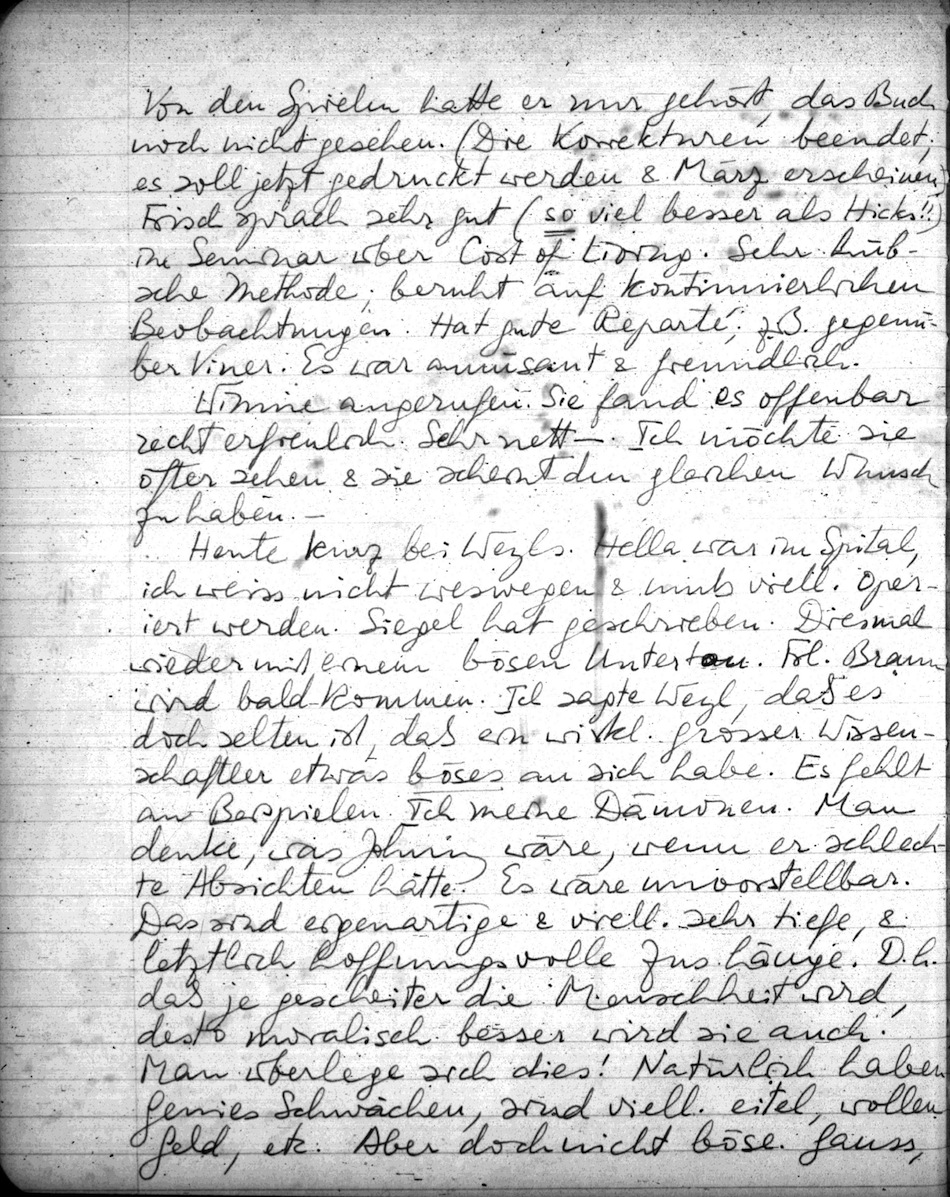 Von den Spielen hatte er nur gehört, das Buch
noch nicht gesehen. (Die Korrekturen beendet;
es soll jetzt gedruckt werden & März erscheinen)
Frisch sprach sehr gut (so viel besser als Hicks!!)
im Seminar über Cost of Living. Sehr hüb-
sche Methode; beruht auf kontinuierlichen
Beobachtungen. Hat gute Reparté; z.B. gegenü-
ber Viner. Es war amüsant & freundlich.
Winnie angerufen. Sie fand es offenbar
recht erfreulich. Sehr nett —. Ich möchte sie
öfter sehen & sie scheint den gleichen Wunsch
zu haben. —
Heute kurz bei Weyls. Hella war im Spital,
ich weiss nicht weswegen & muß viell. oper-
iert werden. Siegel hat geschrieben. Diesmal
wieder mit einem bösen Unterton. Frl. Braun
wird bald kommen. Ich sagte Weyl, daß es
doch selten ist, daß ein wirkl. grosser Wissen-
schaftler etwas böses an sich habe. Es fehlt
an Beispielen. Ich meine Dämonen. Man
denke, was Johnny wäre, wenn er schlech-
te Absichten hätte. Es wäre unvorstellbar.
Das sind eigenartige & viell. sehr tiefe, &
letztlich hoffnungsvolle Zus.hänge. D.h.
daß je gescheiter die Menschheit wird,
desto moralisch besser wird sie auch.
Man überlege sich dies! Natürlich haben
Genies Schwächen, sind viell. eitel, wollen
Geld, etc. Aber doch nicht böse. Gauss,